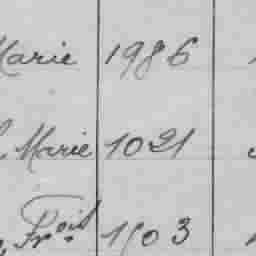 Marie 1986
Marie 1021
Fr.ois 1503